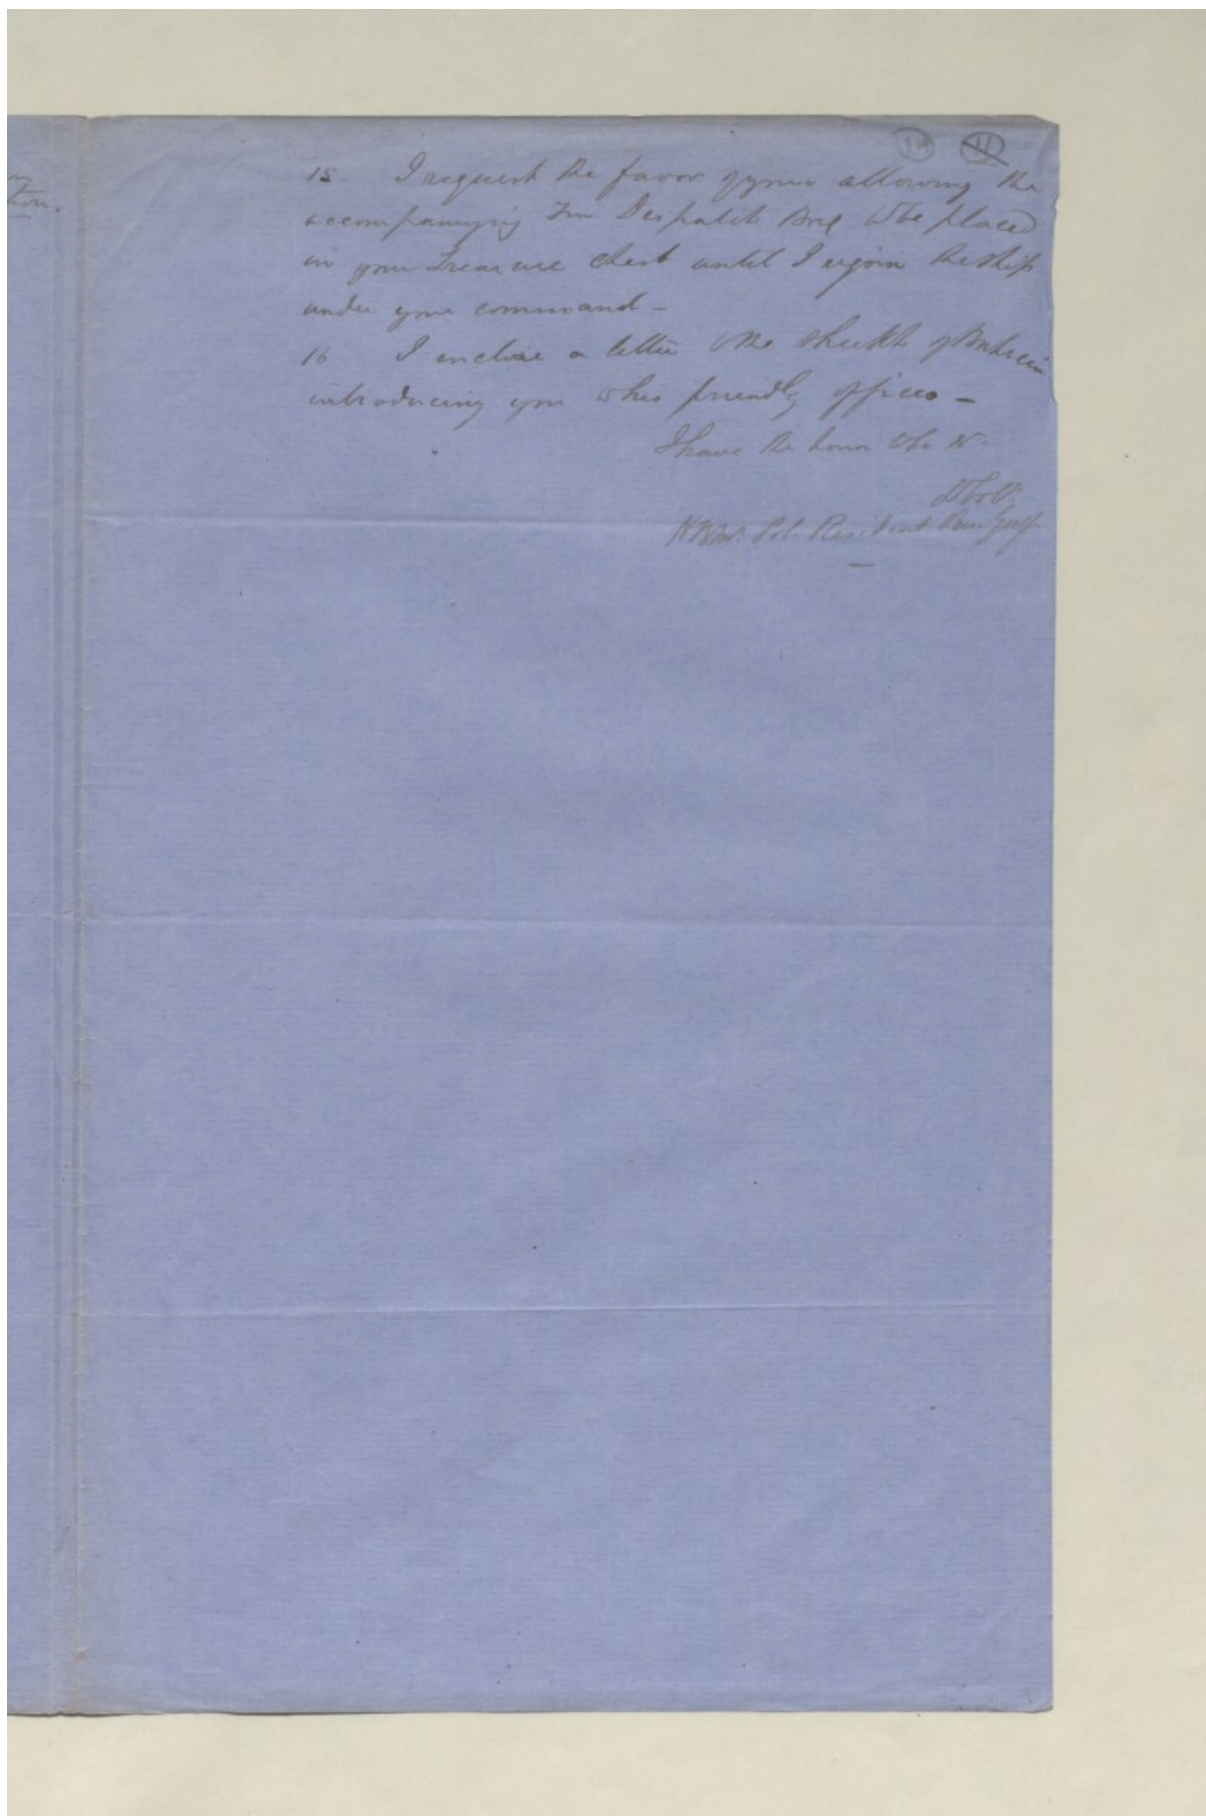 14 11
15. I request the favor of your allowing the
accompanying Tin Despatch Box to be placed
in your Treasure Chest until I rejoin the Ship
under your command –
16 I enclose a letter to the Sheikh of Bahrein
introducing you to his friendly offices –
I have the honor to be &c
HBM's Pol. Resident Pers: Gulf